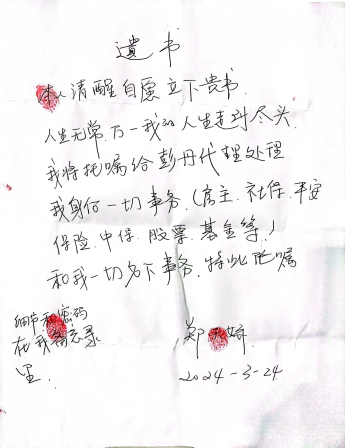 遗书
本人清醒自愿立下贵书.
人生无常.万一我的人生走到尽头.
我将托嘱给彭丹代理处理
我身何一切事务.(房主.社保.平安
保险.中保.股票.基金等.)
和我一切名下事务.特此托嘱
细节和密码
在我备忘录
里.
郑 婷.
2024-3-24